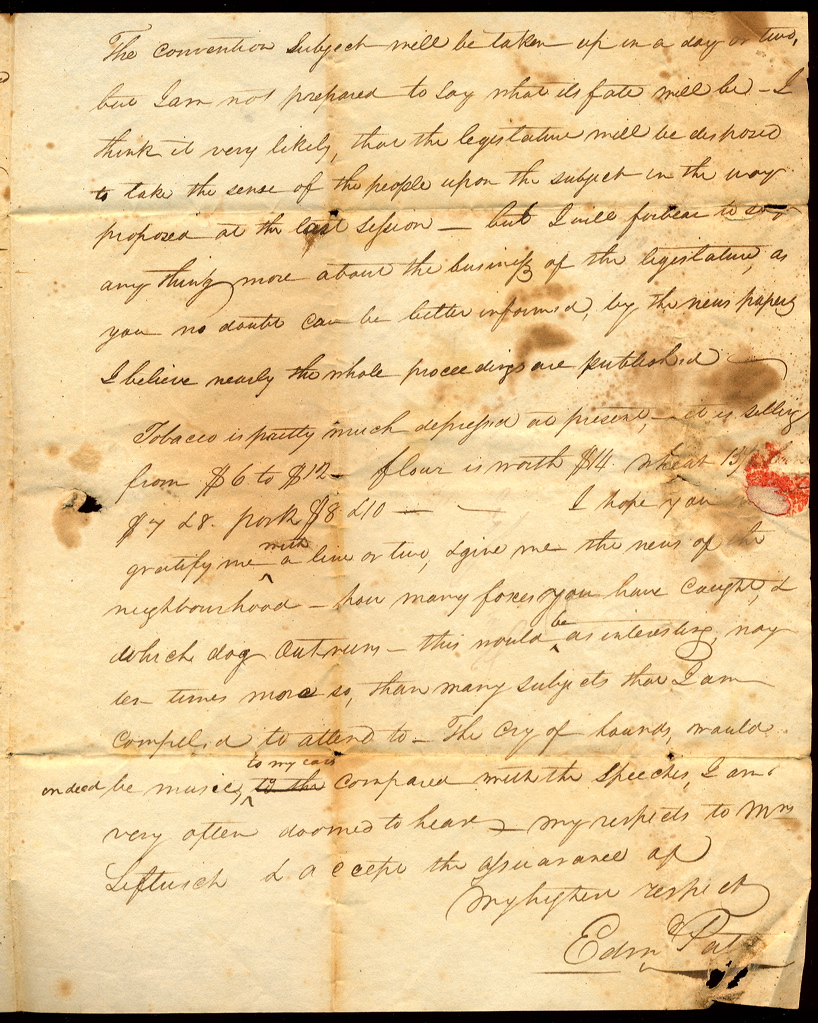 The convention Subject will be taken up in a day or two,
but I am not prepared to say what its fate will be - I
think it very likely, that the legislature will be disposed
to take the sense of the people upon the subject in the way
proposed at the last session — but I will forbear to say
any thing more about the business of the legislature, as
you no doubt can be better informed, by the news papers
I believe nearly the whole proceedings are published —
Tobacco is pretty much depressed at present, - it is selling
from $6 to $12 - flour is worth $14 wheat 13/
$7 & 8. pork $8 & 10 — — I hope you
gratify me with a line or two, & give me the news of the
neighbourhood - how many foxes you have caught, &
which dog Out runs - this would be as interesting, nay
ten times more so, than many subjects that I am
Compelled to attend to - The cry of hounds, would
indeed be music, to my ears to the compared with the Speeches, I am
very often doomed to hear - my respects to Mrs
Leftwich & accept the assurance of
my highest respect
Edm